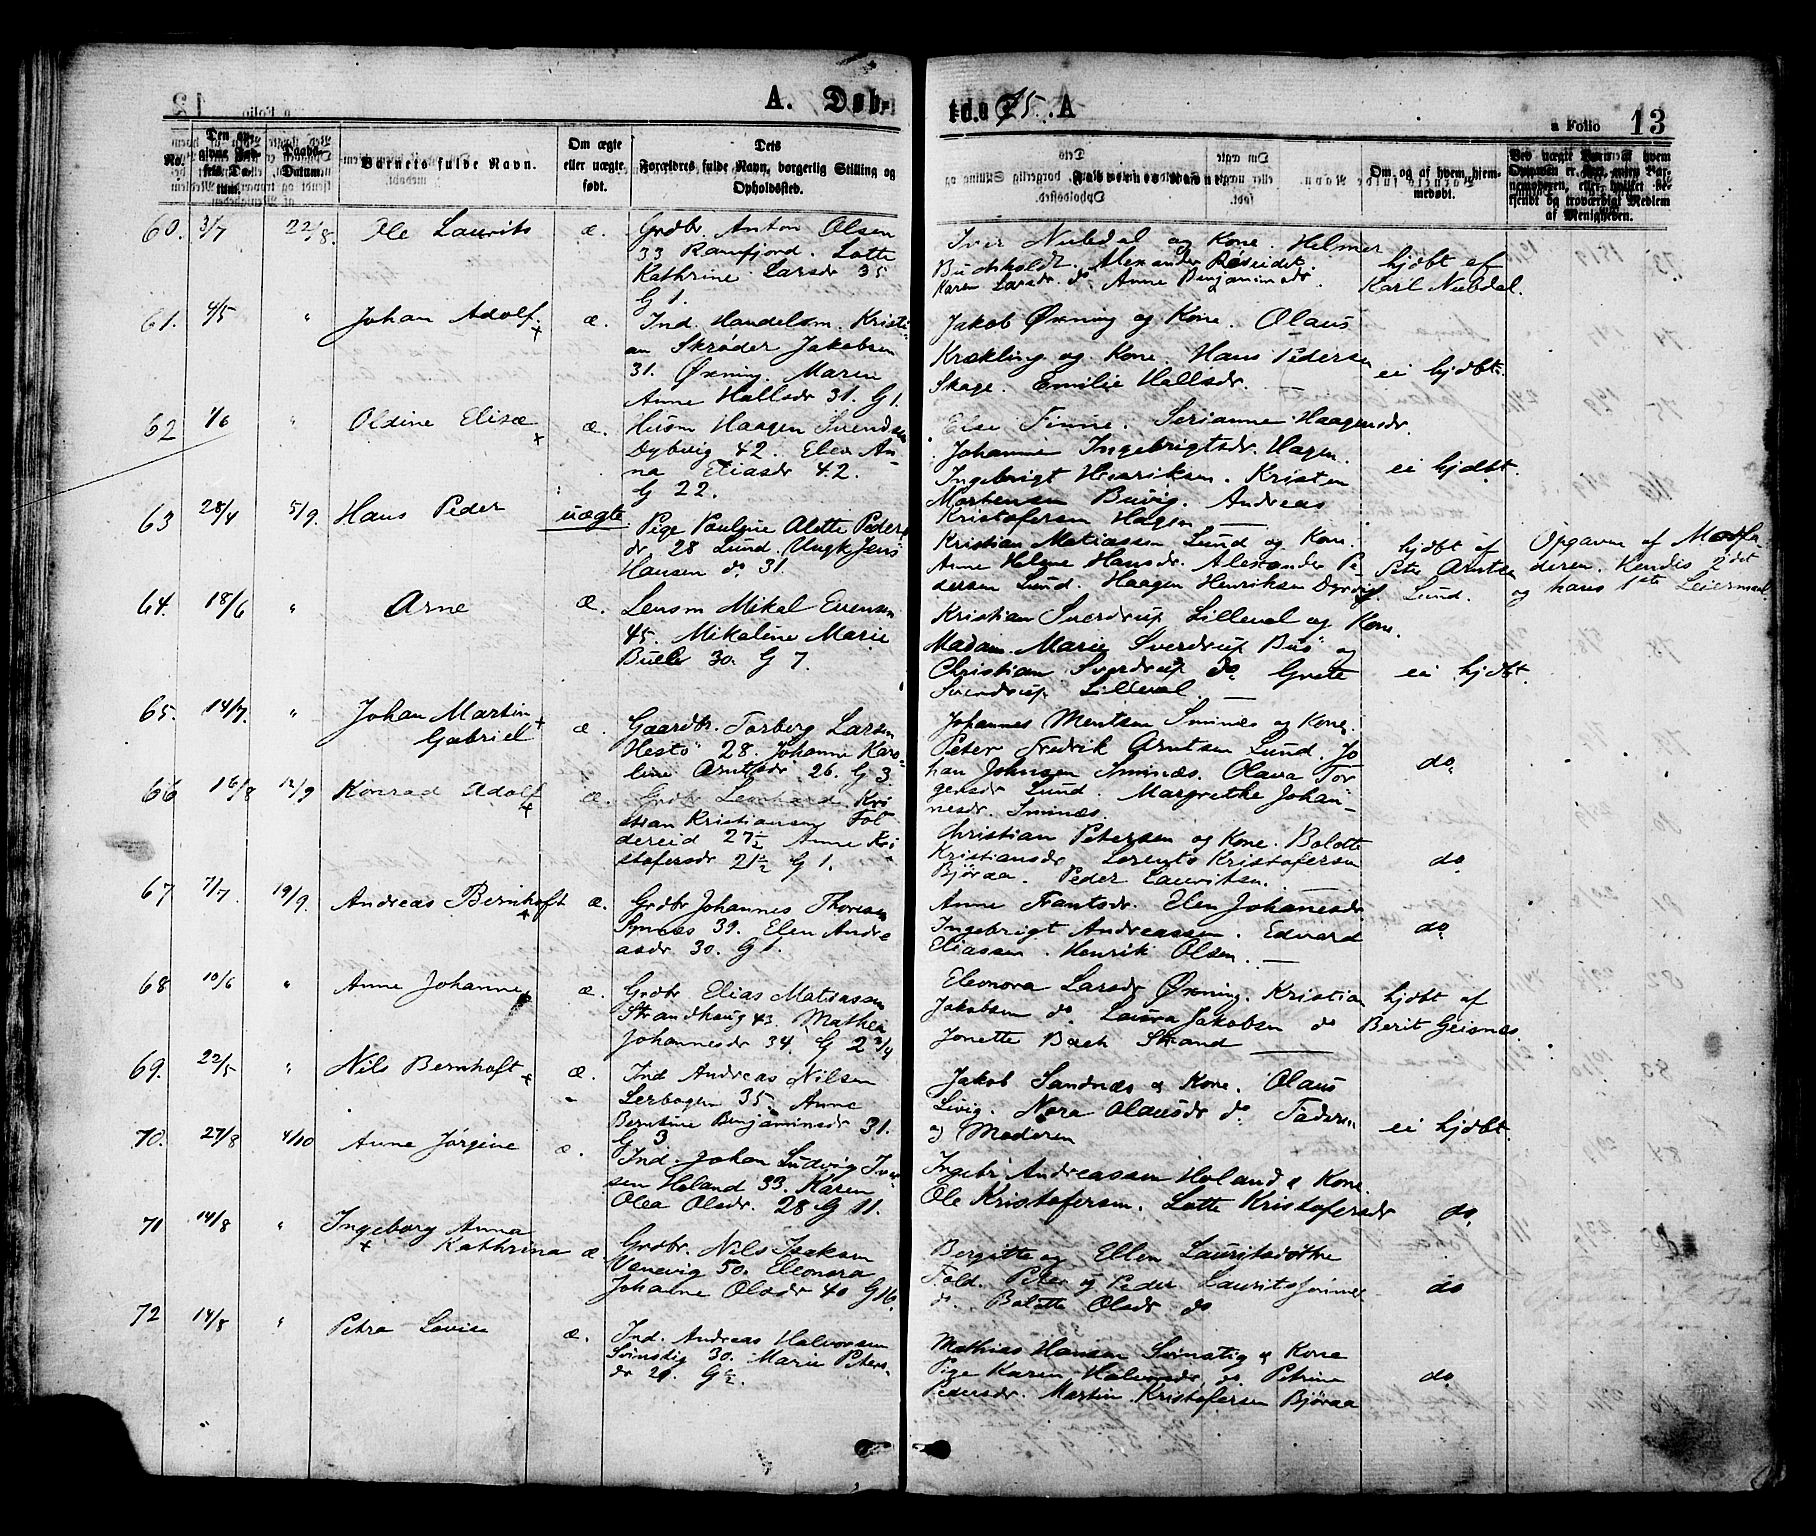 A. Døb-
te. 75. A
a Folio 13
No.
Den op-
givne Fød-
sels Da-
tum.
Daabs-
Datum.
Barnets fulde Navn.
Om ægte
eller uægte
født.
Dets
Forældres fulde Navn, borgerlig Stilling og
Opholdssted.
Faddernes Navne.
Om, og af hvem, hjem-
medøbt.
60. 3/7 22/8. Ole Laurits æ.
Grdbr. Anton Olsen
33 Ramfjord. Lotte
Kathrine Larsdr 35
G 1.
Iver Nubdal og Kone. Helmer
Buchholdt. Alexander
Karen Larsdr. do Anne Benjaminsdr.
hjdbt af
Karl Nubdal.
61. 4/5 " Johan Adolf. + æ.
Ind. Handelsm. Kristi-
an Skrøder Jakobsen
31. Øxning. Maren
Anne Hallsdr 31. G 1.
Jakob Øxning og Kone. Olaus
Krækling og Kone. Hans Pedersen
Skage. Emilie Hallsdr.
ei hjdbt.
62 1/6 " Oldine Elisæ + æ.
Husm Haagen Svendsen
Dybvig 42. Elen An-
na Eliasdr 42.
G 22.
Else Finne. Serianne Haagensdr.
Johanne Ingebrigtsdr. Hagen.
Ingebrigt Henriksen. Kristen
Mortensen Buvig. Andreas
Kristofersen Hagen
ei hjdbt.
63 28/4 5/9. Hans Peder uægte
Pige Pauline Alette Peders
dr. 28 Lund. Ungk Jens
Hansen do 31.
Kristian Matiassen Lund og Kone.
Anne Helene Hansdr. Alexander Pe-
dersen Lund. Haagen Henriksen Dyrvig
hjdbt af
Peter Arntsen
Lund.
Opgaven af Modfa-
deren. Hendes 2det
og hans 1ste Leiermaal.
64. 18/6 " Arne æ.
Lensm Mikal Evensen
45. Mikaline Marie
Buller 30. G 7.
Kristian Sverdrup Lilleval og Kone.
Madam. Marie Sverdrup Buö og
Christian Sverdrup do Grete
Sverdrup Lilleval.
ei hjdbt.
65. 14/7. " Johan Martin +
Gabriel æ.
Gaardbr. Torberg Larsen
Hestö 28. Johanne Karo-
line Arntsdr. 26. G 3
Johannes Mentsen Sminæs og Kone.
Peter Fredrik Arntsen Lund. Jo
han Johnsen Sminæs. Olava Tor
gersdr Lund. Margrethe Johan-
nesdr. Sminæs.
do.
66 16/8 12/9 Konrad Adolf + æ.
Grdbr. Leonhard Kri
stian Kristiansen Fol
dereid 27 1/2 Anne Kri
stofersdr 21 1/2 G 1.
Christian Petersen og Kone. Bolotte
Kristiansdr Lorents Kristofersen
Björaa. Peder Lauritsen.
do
67 7/7 19/9. Andreas Bernhoft + æ.
Grdbr Johannes Thoresen
39. Elen Andre
asdr. 30. G 1.
Anne Frantsdr. Elen Johanesdr
Ingebrigt Andreassen. Edvard
Eliassen. Henrik Olsen.
do.
68 10/6 " Anne Johanne æ.
Grdbr Elias Matiassen
Strandhaug 43. Mathea
Johannesdr 34. G 2 3/4
Eleonora Larsdr Øxning. Kristian
Jakobsen do. Laura Jakobsen do
Jonette Bach Strand
hjdbt af
Berit Geisnes.
69. 22/5 " Nils Bernhoft + æ.
Ind Andreas Nilsen
Lerbogen 35. Anne
Berntine Benjaminsdr 31.
G 3
Jakob Sandnæs & Kone. Olaus
Livig. Nora Olausdr do. Faderen
og Moderen
ei hjdbt.
70. 27/8 4/10 Anne Jørgine æ.
Ind. Johan Ludvig Iver
sen Höland 33. Karen
Olea Olsdr. 28 G 11.
Ingebr Andreassen Holand & Kone.
Ole Kristofersen. Lotte Kristofersdr
do.
71 14/8 " Ingeborg Anna
+ Kathrina æ.
Grdbr. Nils Isaksen
Vennevig 50. Eleonora
Johanne Olsdr 40 G 16.
Bergitte og Ellen Lauritsdötre
Fold. Peter og Peder Lauritssönner
do. Bolotte Olsdr do
do
72 14/8 " Petra Lovise æ.
Ind. Andreas Halvorsen
Svinstig 30. Marie Peters-
dr 21. G 1/2.
Mathias Hansen Svinstig & Kone
Pige Karen Halvorsdr do. Petrine
Pedersdr. Martin Kristofersen Björaa
do